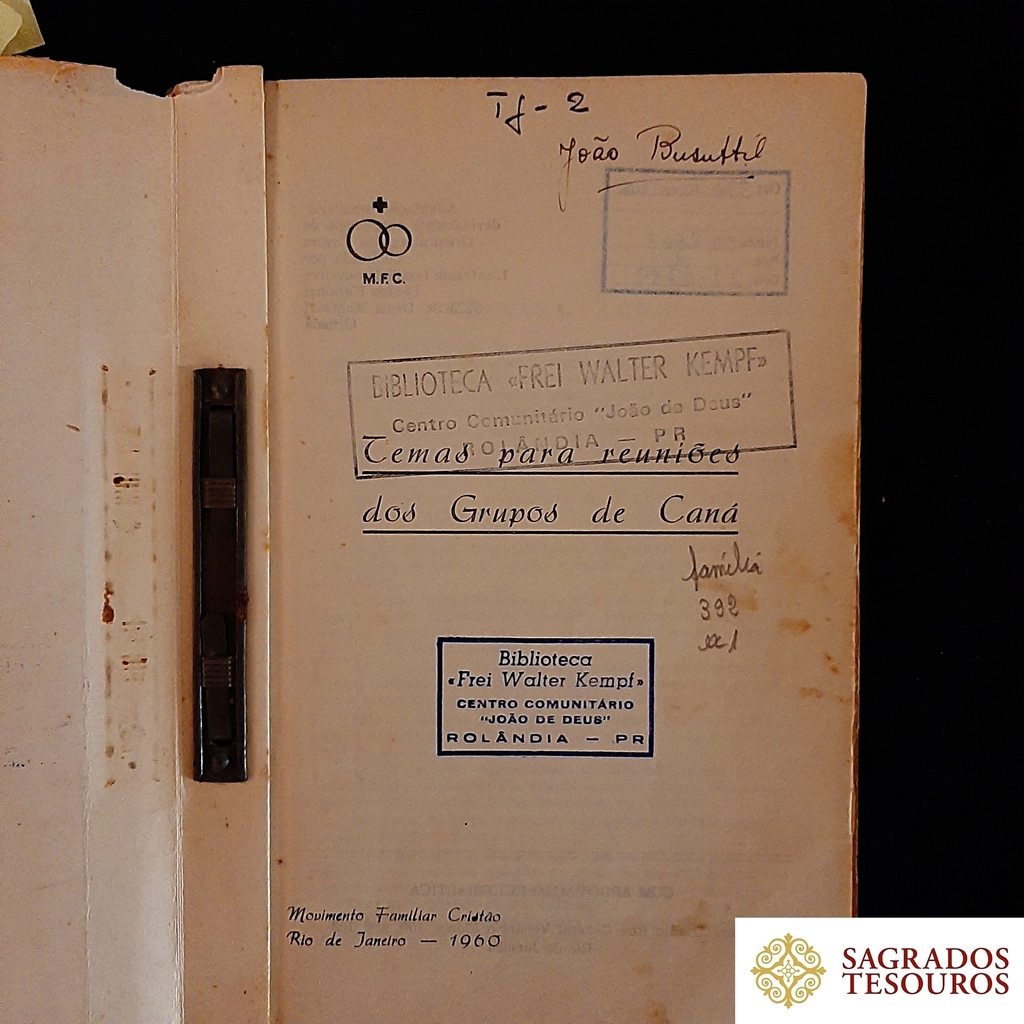 Tf - 2
João Busuttil
M.F.C.
BIBLIOTECA «FREI WALTER KEMPF»
Centro Comunitário "João de Deus"
ROLÂNDIA — PR
Temas para reuniões
dos Grupos de Caná
família
392
ex1
Biblioteca
«Frei Walter Kempf»
CENTRO COMUNITÁRIO
"JOÃO DE DEUS"
ROLÂNDIA — PR
Movimento Familiar Cristão
Rio de Janeiro — 1960
SAGRADOS
TESOUROS